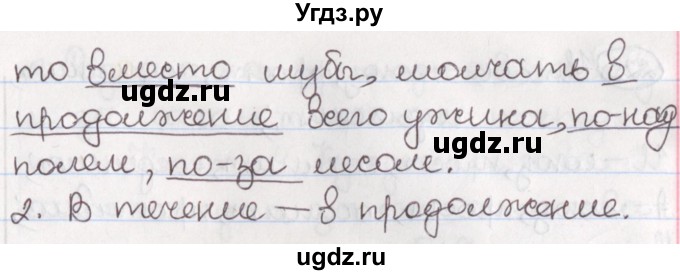 Угдз.ру
то вместо шубы, молчать в
продолжение всего ужина, по-над
полем, по-за лесом.
2. В течение – в продолжение.
ugdz.ru
ugdz.ru
ugdz.ru
ugdz.ru
ugdz.ru
Угдз.ру